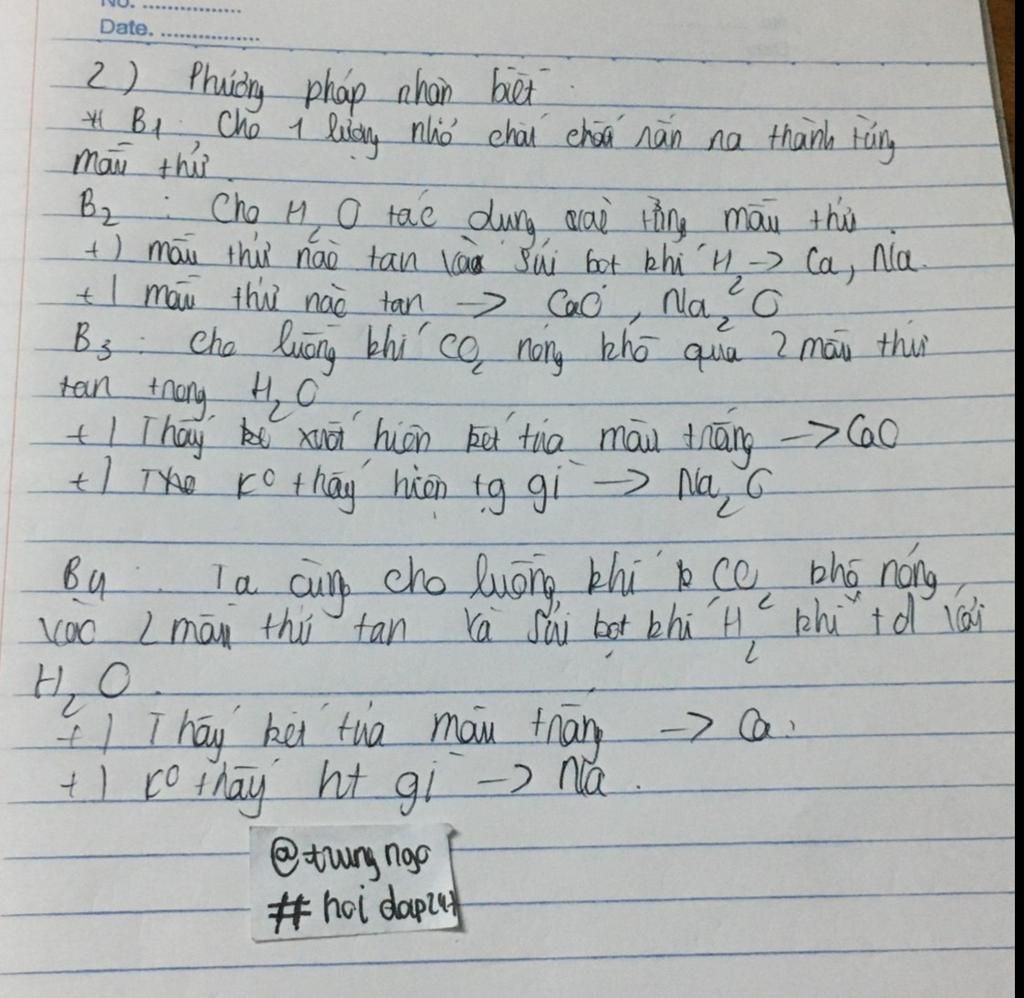 No. ..................
Date. ..................
2) Phương pháp nhận biết
* B1: Cho 1 lượng nhỏ chất rắn ra thành từng
mẫu thử.
B2: Cho H2O tác dụng với từng mẫu thử.
+) mẫu thử nào tan và sủi bọt khí H2 -> Ca, Na.
+) mẫu thử nào tan -> CaO, Na2O
B3: Cho luồng khí CO2 nóng khô qua 2 mẫu thử
tan trong H2O
+) Thấy xuất hiện kết tủa màu trắng -> CaO
+) K0 thấy hiện tg gì -> Na2O
B4: Ta cũng cho luồng khí CO2 khô nóng
vào 2 mẫu thử tan và sủi bọt khí H2 khi t d với
H2O.
+) Thấy kết tủa màu trắng -> Ca.
+) K0 thấy ht gì -> Na.
@trungngo
#hoidap247